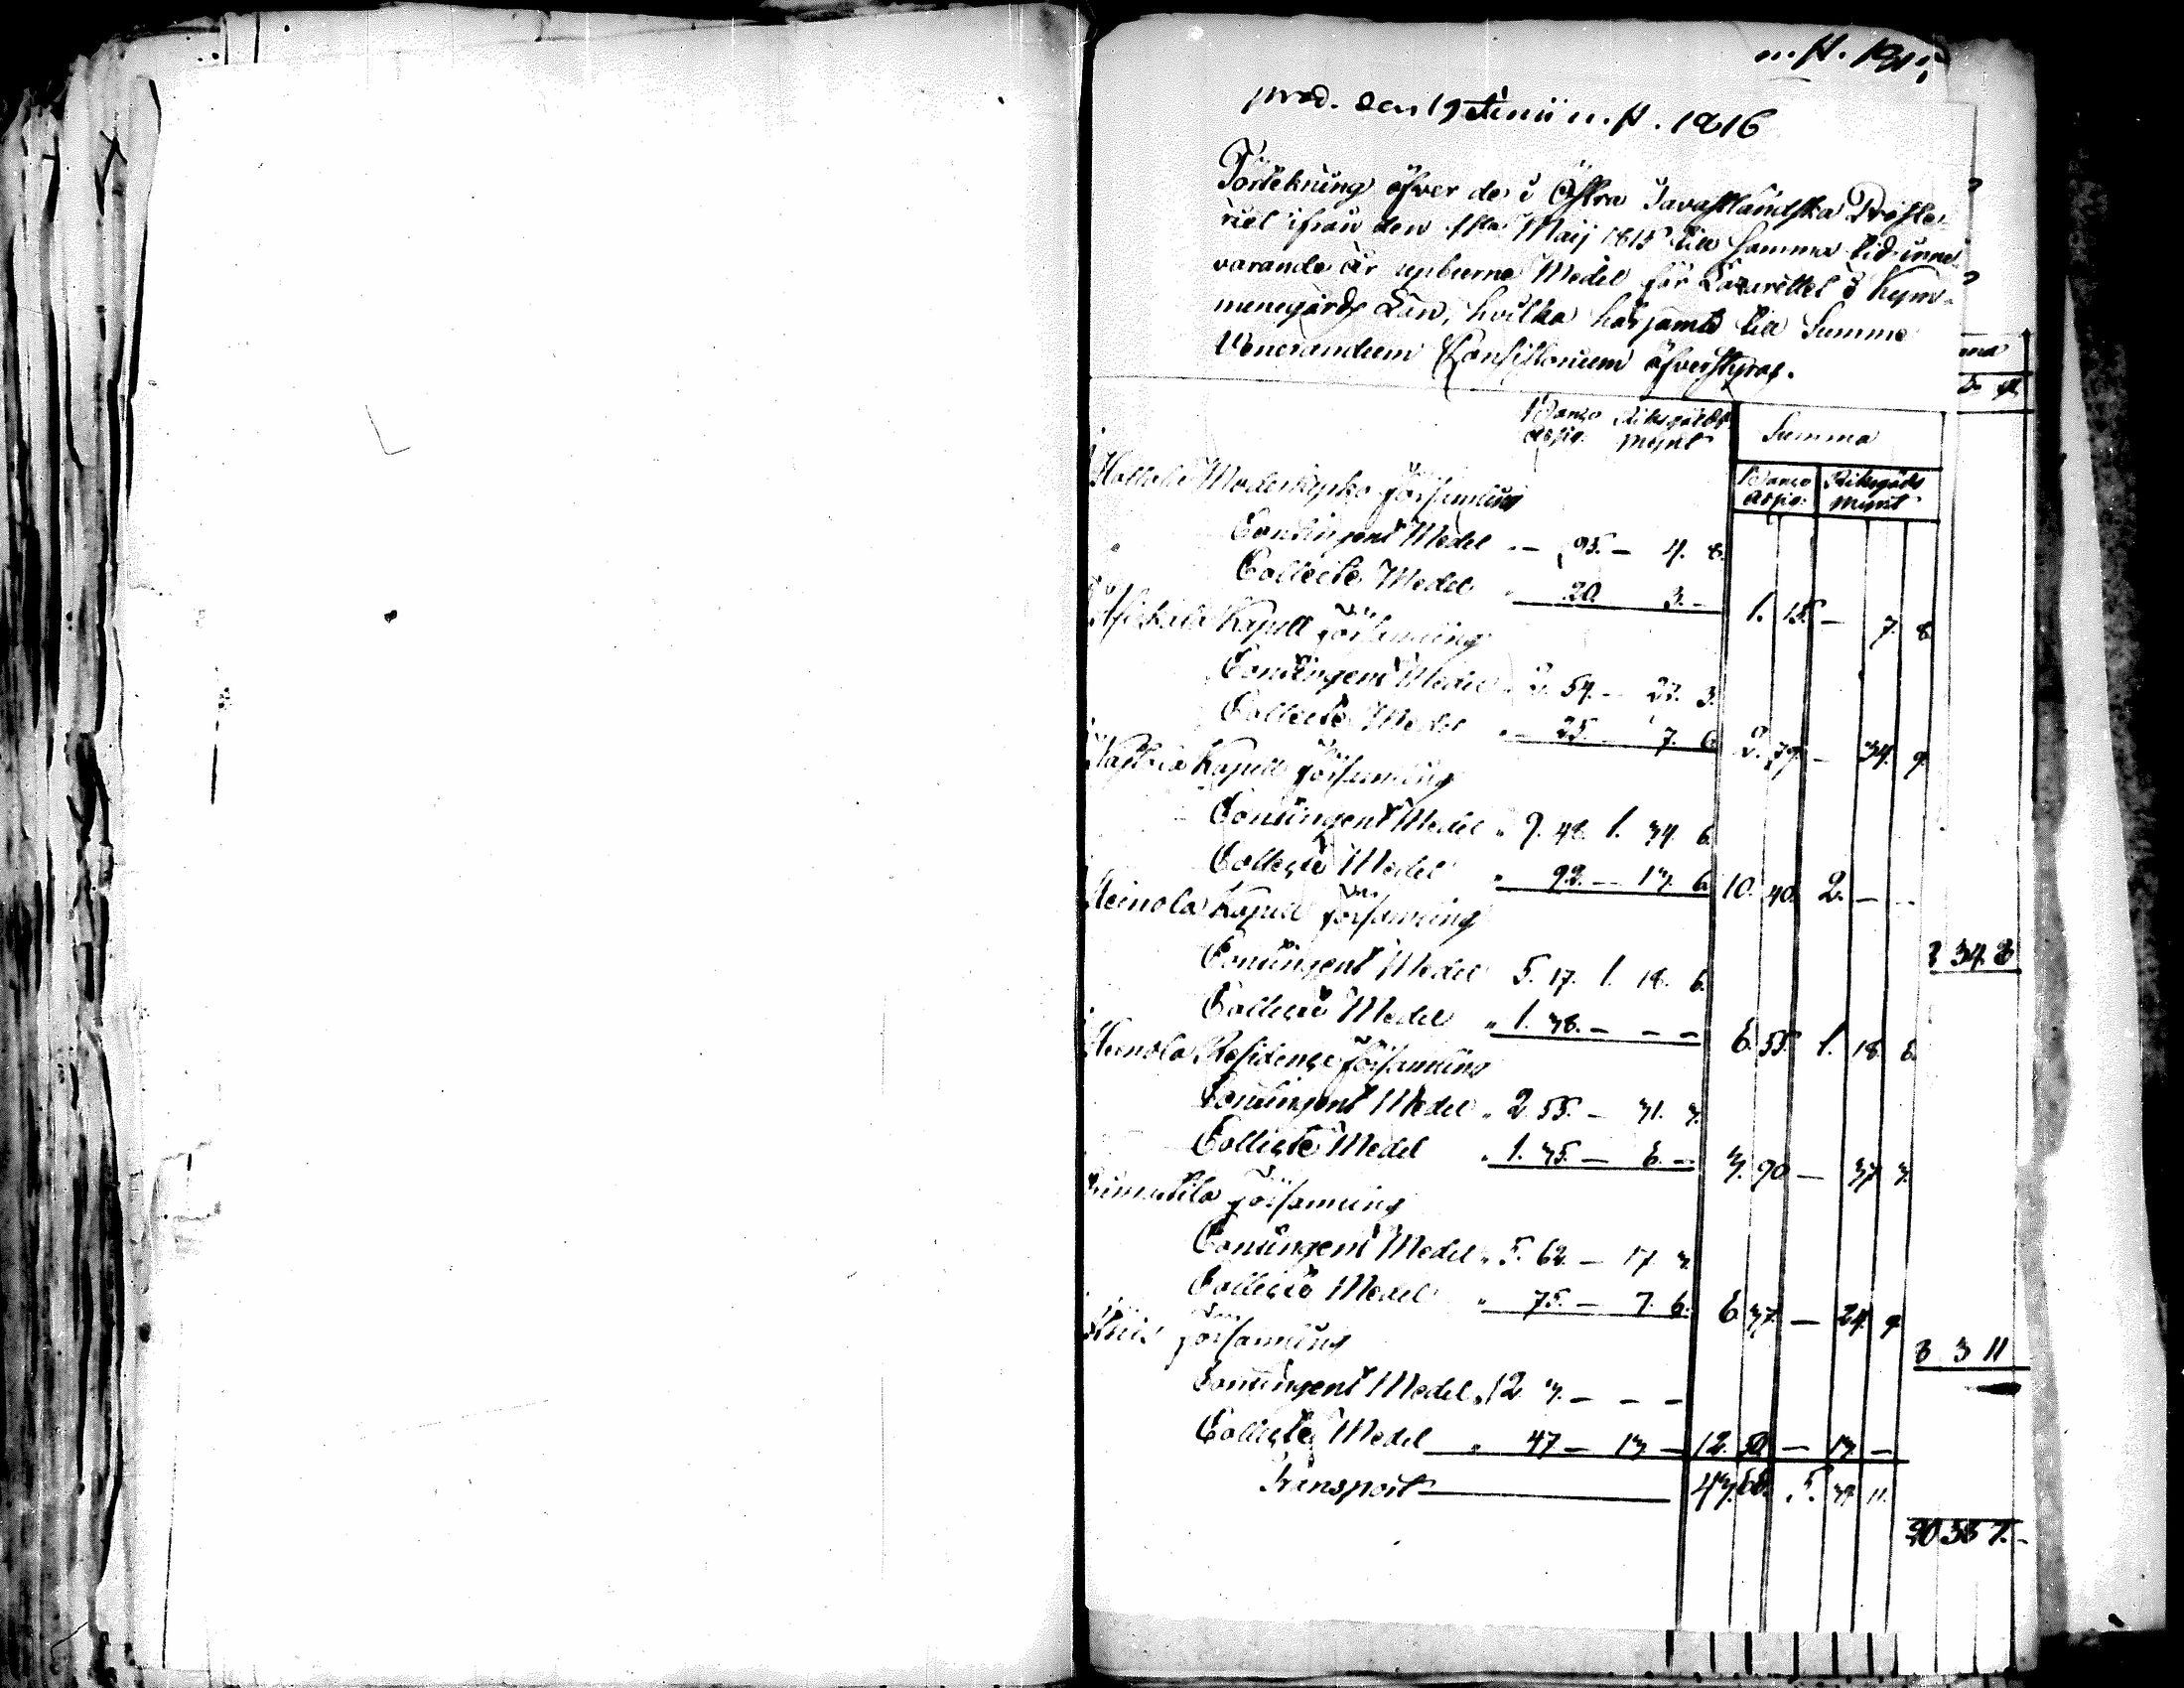 prod. den 19 Junii n. st. 1816
Förtekning öfver de i Östra Tavastländska Proste-
riet ifrån den 1sta Maij 1815 till samma tid inne-
varande år upburne Medel för Lazarettet i Kym-
menegårds Län, hvilka härjämte till Summe
Venerandum Consistorium öfverstyras.
Banco Riksgälds
Assig. Mynt Summa
Banco Riksgälds
Assig. Mynt
Hollola Moderkyrko församling
Contingent Medel — 95. — 4. 8.
Collecte Medel 20. 3. — 1. 15. — 7. 8
Kapell församling
Contingent Medel 2. 54. — 27. 3.
Collecte Medel 25. — 7. 6 2. 79. — 34. 9.
Nastola Kapell församling
Contingent Medel 9. 48. 1. 34. 6.
Collecte Medel 92. — 13. 6. 10. 40. 2. — —
Heinola Kapell församling
2 34. 8
Contingent Medel 5. 17. 1. 18. 6.
Collecte Medel 1. 38. — — — 6. 55. 1. 18. 6.
Heinola Residence församling
Contingent Medel 2. 55. — 31. 3.
Collecte Medel 1. 35. — 6. — 3. 90 — 37 3.
församling
Contingent Medel 5. 62. — 17. 3.
Collecte Medel 75. — 7. 6. 6 37. — 24. 9.
församling
3 3 11
Contingent Medel 12 3. — — —
Collecte Medel 47 — 13 — 12. 50 — 13. —
Transport 43. 66. 5. 37 11.